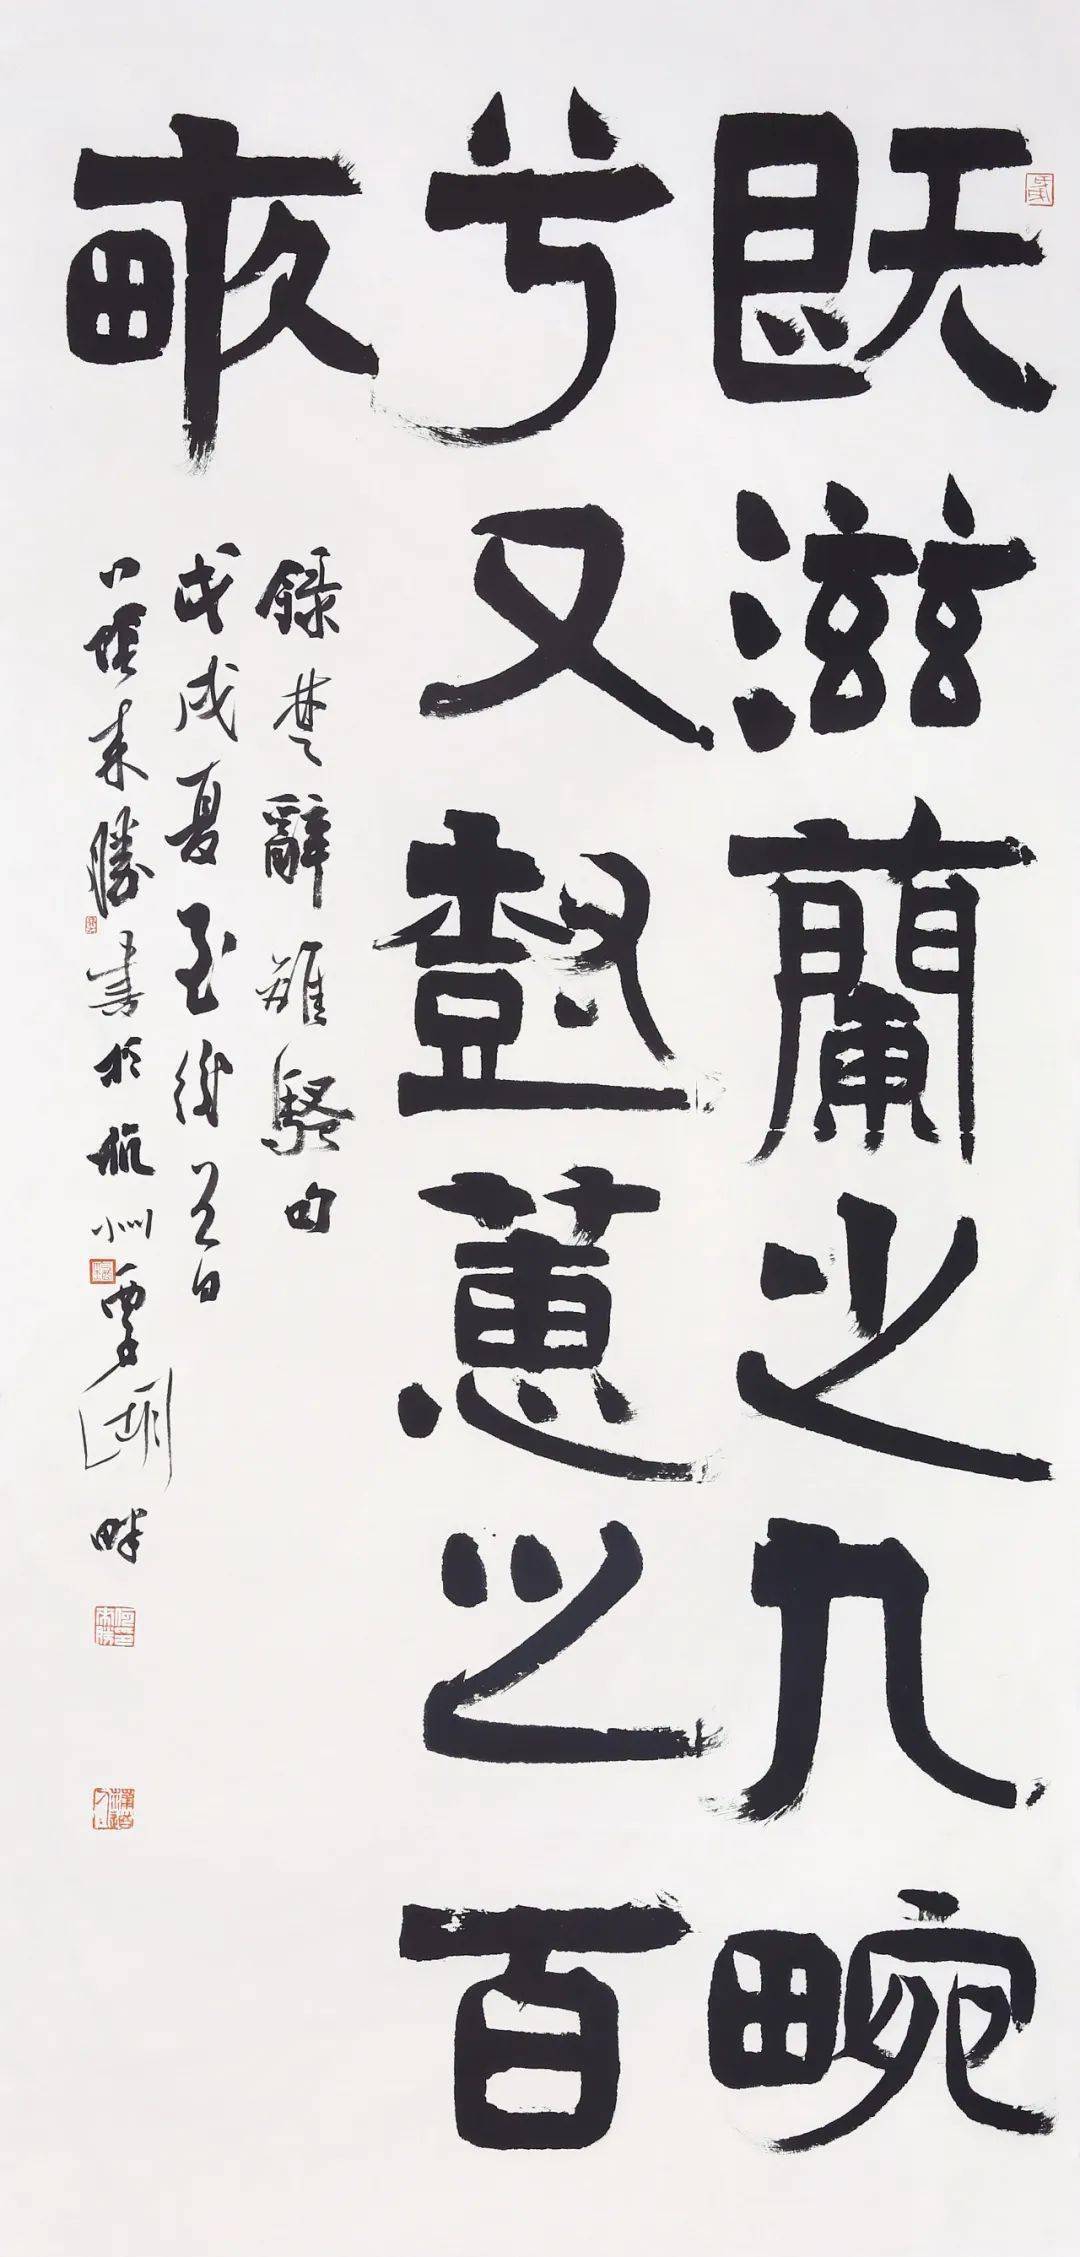 既滋蘭之九畹
兮又樹蕙之百
畝
錄楚辭離騷句
戊戌夏至後日
來勝書於杭州西子湖畔